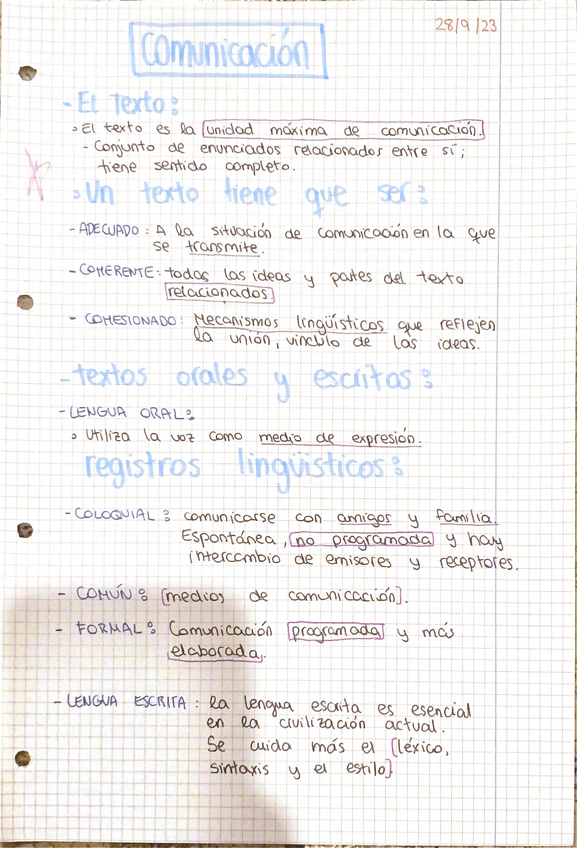 28/9/23
Comunicación
- El Texto:
• El texto es la unidad máxima de comunicación.
- Conjunto de enunciados relacionados entre sí;
tiene sentido completo.
• Un texto tiene que ser:
- ADECUADO: A la situación de comunicación en la que
se transmite.
- COHERENTE: todas las ideas y partes del texto
relacionados
- COHESIONADO: Mecanismos lingüísticos que reflejen
la unión, vínculo de las ideas.
- textos orales y escritos:
- LENGUA ORAL:
• Utiliza la voz como medio de expresión.
registros lingüisticos:
- COLOQUIAL: comunicarse con amigos y familia.
Espontánea, no programada y hay
intercambio de emisores y receptores.
- COMÚN: [medios de comunicación].
- FORMAL: Comunicación programada y más
elaborada.
- LENGUA ESCRITA: la lengua escrita es esencial
en la civilización actual.
Se cuida más el [léxico,
sintaxis y el estilo]